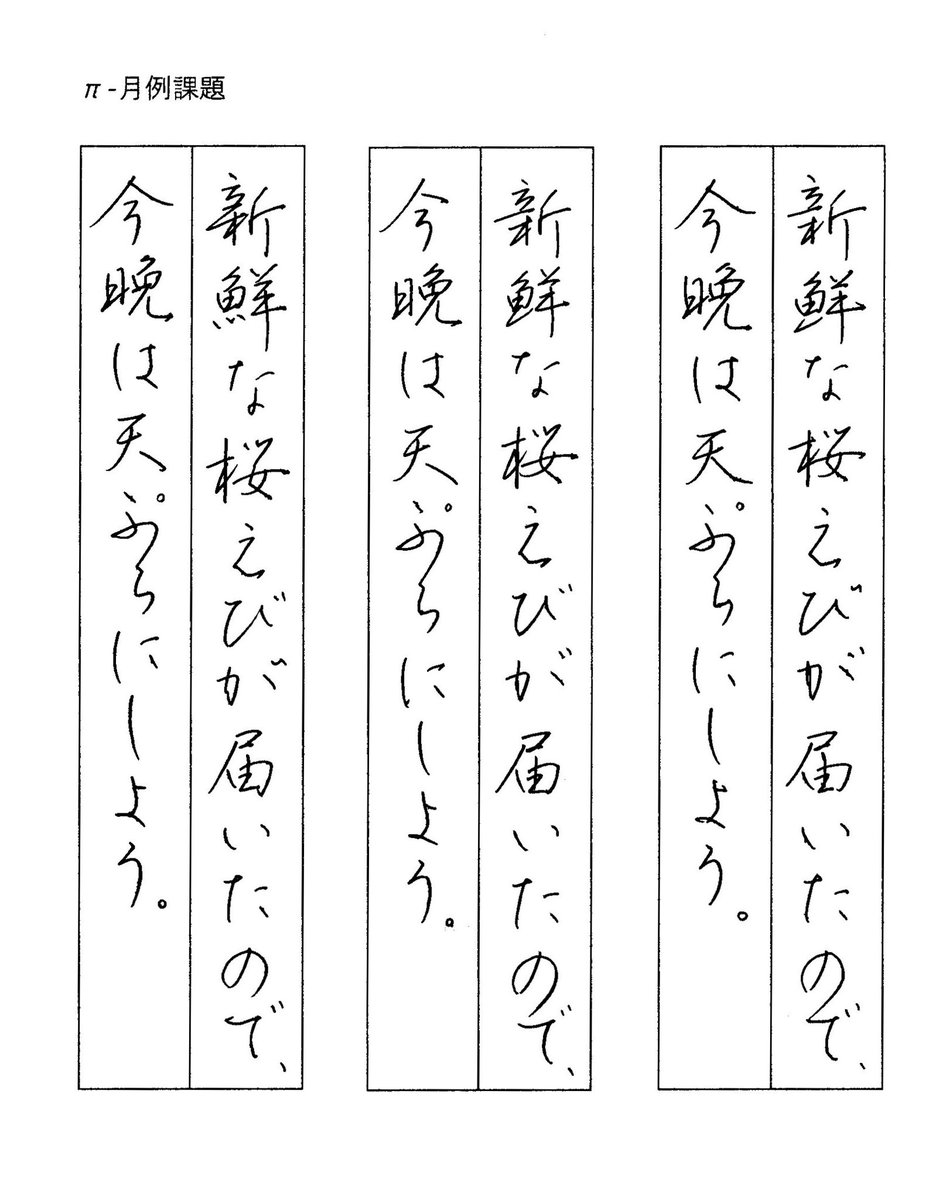 π-月例課題
新鮮な桜えびが届いたので、
今晩は天ぷらにしよう。
新鮮な桜えびが届いたので、
今晩は天ぷらにしよう。
新鮮な桜えびが届いたので、
今晩は天ぷらにしよう。